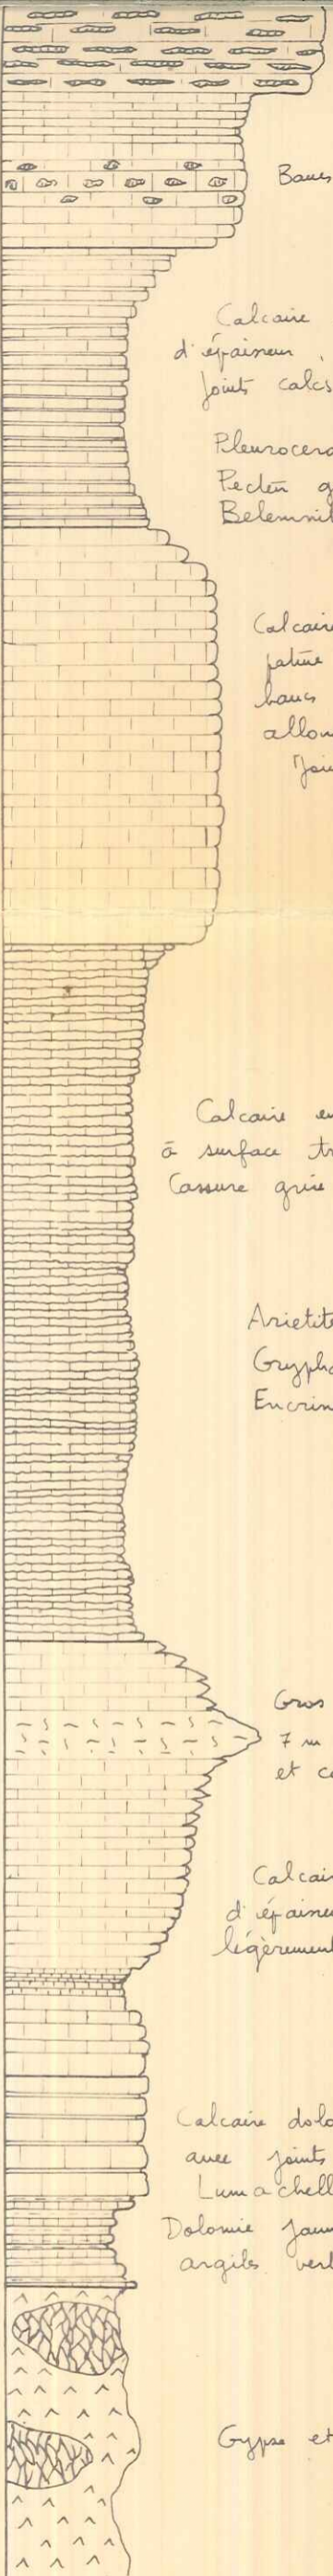 Bancs
Calcaire
d'épaisseur
Joints calcs
Pleurocera
Pecten g
Belemnit
Calcaire
patine
bancs
allon
Join
Calcaire en
à surface tr
Cassure grise
Arietite
Grypha
Encrin
Gros
7 m
et c
Calcair
d'épaisseu
légèrement
Calcaire dolo
avec joints
Lumachell
Dolomie jaun
argiles vert
Gypse et